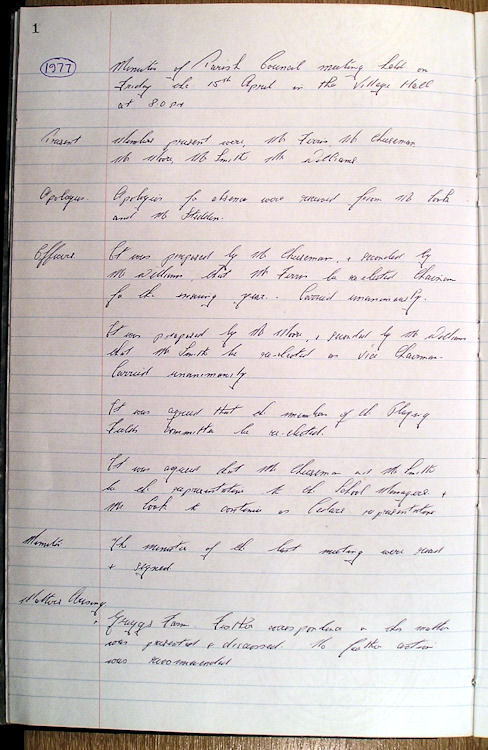 1
1977
Minutes of Parish Council meeting held on
Friday the 15th April in the Village Hall
at 8.0 pm
Present Members present were, Mr Ferris Mr Cheeseman
Mr Moore, Mr Smith Mr Williams
Apologies Apologies for absence were received from Mr Cook
and Mr
Officers It was proposed by Mr Cheeseman, & seconded by
Mr Williams, that Mr Ferris be re-elected Chairman
for the ensuing year. Carried unanimously.
It was proposed by Mr Moore, & seconded by Mr Williams
that Mr Smith be re-elected as Vice Chairman.
Carried unanimously
It was agreed that the members of the Playing
Fields Committee be re-elected.
It was agreed that Mr Cheeseman and Mr Smith
be the representatives to the School Managers &
Mr Cook to continue as representative
Minutes The minutes of the last meeting were read
& signed
Matters Arising
Farm. Further correspondence on this matter
was presented & discussed. No further action
was recommended